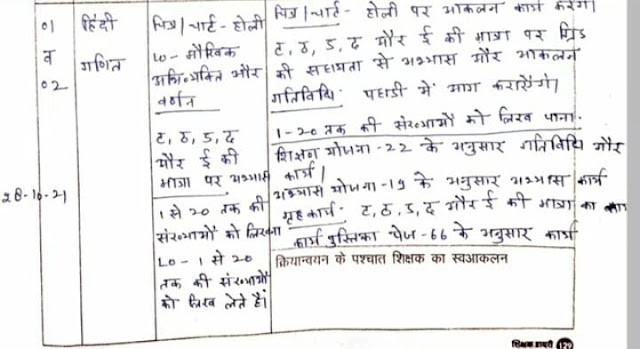 01
व
02
28-10-21
हिंदी
गणित
चित्र/चार्ट - होली
LO - मौखिक
अभिव्यक्ति और
वर्णन
ट, ठ, ड, ढ
और ई की
मात्रा पर अभ्यास
1 से 20 तक की
संख्याओं को लिखना
LO - 1 से 20
तक की संख्याओं
को लिख लेते हैं।
चित्र/चार्ट - होली पर आकलन कार्य करेंगे।
ट, ठ, ड, ढ और ई की मात्रा पर ग्रिड
की सहायता से अभ्यास और आकलन
गतिविधि: पहाडी में भाग कराऐंगे।
1-20 तक की संख्याओं को लिख पाना.
शिक्षण योजना -22 के अनुसार गतिविधि और
कार्य।
अभ्यास योजना -19 के अनुसार अभ्यास कार्य
गृह कार्य: ट, ठ, ड, ढ और ई की मात्रा का कार्य
कार्य पुस्तिका पेज -66 के अनुसार कार्य
क्रियान्वयन के पश्चात शिक्षक का स्वआकलन
शिक्षक डायरी